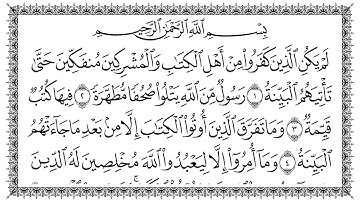 بِسْمِ اللَّهِ الرَّحْمَٰنِ الرَّحِيمِ
لَمْ يَكُنِ الَّذِينَ كَفَرُوا مِنْ أَهْلِ الْكِتَابِ وَالْمُشْرِكِينَ مُنفَكِّينَ حَتَّىٰ
تَأْتِيَهُمُ الْبَيِّنَةُ ١ رَسُولٌ مِّنَ اللَّهِ يَتْلُو صُحُفًا مُّطَهَّرَةً ٢ فِيهَا كُتُبٌ
قَيِّمَةٌ ٣ وَمَا تَفَرَّقَ الَّذِينَ أُوتُوا الْكِتَابَ إِلَّا مِنْ بَعْدِ مَا جَاءَتْهُمُ
الْبَيِّنَةُ ٤ وَمَا أُمِرُوا إِلَّا لِيَعْبُدُوا اللَّهَ مُخْلِصِينَ لَهُ الدِّينَ